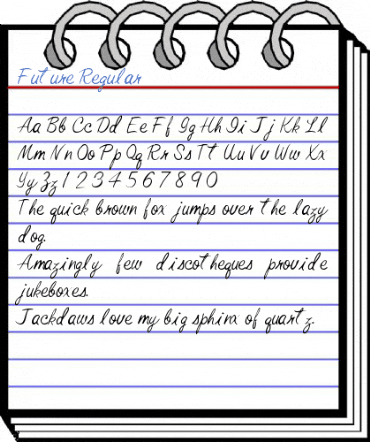 Future Regular
Aa Bb Cc Dd Ee Ff Gg Hh Ii Jj Kk Ll
Mm Nn Oo Pp Qq Rr Ss Tt Uu Vv Ww Xx
Yy Zz 1 2 3 4 5 6 7 8 9 0
The quick brown fox jumps over the lazy
dog.
Amazingly few discotheques provide
jukeboxes.
Jackdaws love my big sphinx of quartz.